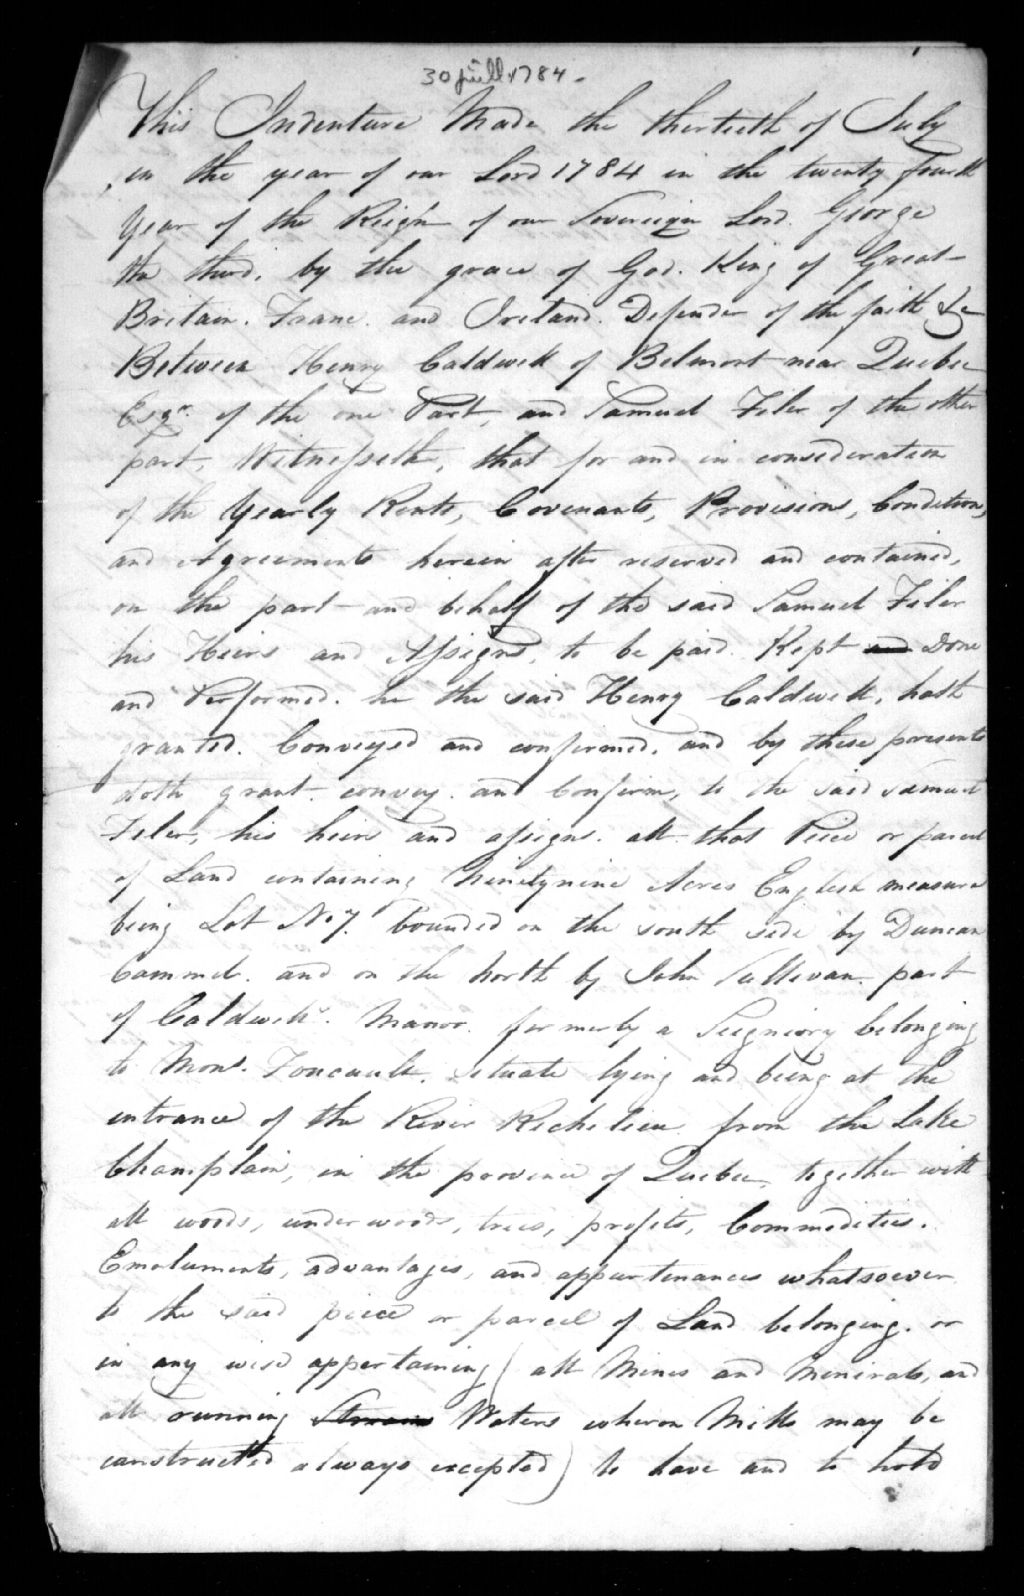 30 juill 1784 -
This Indenture Made the thirtieth of July
in the year of our Lord 1784 in the twenty fourth
Year of the Reign of our Sovereign Lord George
the third, by the grace of God. King of Great
Britain. Franc. and Ireland. Defender of the faith &c
Between Henry Caldwell of Belmont near Quebec
Esqr. of the one Part, and Samuel Filer of the other
part, Witnesseth, that for and in consideration
of the Yearly Rents, Covenants, Provisions, Conditions,
and Agreements herein after reserved and contained,
on the part and behalf of the said Samuel Filer
his Heirs and Assigns, to be paid. Kept and Done
and Performed. he the said Henry Caldwell, hath
granted. Conveyed and confirmed, and by these presents
doth grant. convey. and Confirm, to the said Samuel
Filer, his heirs and assigns. all that Piece or parcel
of Land containing Ninetynine Acres English measure
being Lot No 7. bounded on the south side by Duncan
Cammel. and on the North by John Sullivan. part
of Caldwells. Manor. formerly a Seigniory belonging
to Mons. Foucault. situate lying and being at the
entrance of the River Richelieu from the Lake
Champlain, in the province of Quebec, together with
all woods, underwoods, trees, profits, Commodities.
Emoluments, advantages, and appurtenances whatsoever
to the said piece or parcel of Land belonging. or
in any wise appertaining (all Mines and Minerals, and
all running Streams Waters wheron Mills may be
constructed always excepted) to have and to hold